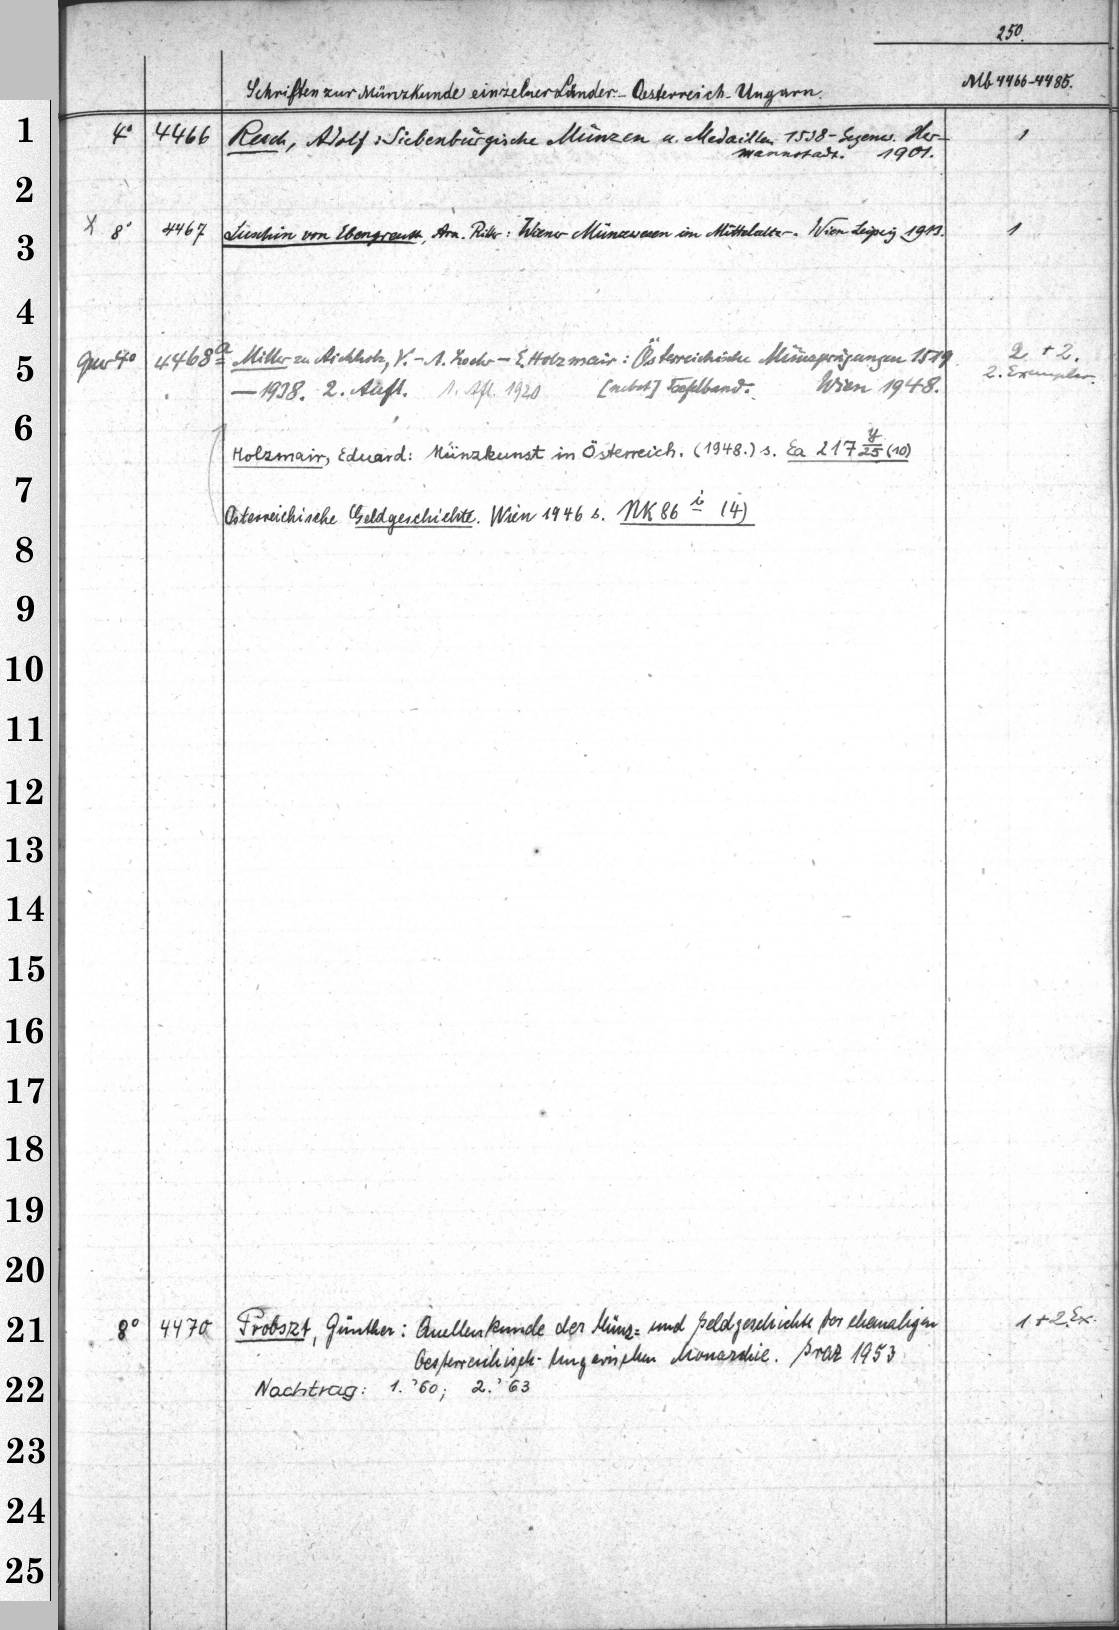 250.
Schriften zur Münzkunde einzelner Länder. – Oesterreich-Ungarn.
Mb 4466-4485.
1
4° 4466 Resch, Adolf: Siebenbürgische Münzen u. Medaillen 1538 – Gegenw. Her- 1
mannstadt. 1901.
2
X 8° 4467 Luschin von Ebengreuth, Arn. Ritter: Wiener Münzwesen im Mittelalter. Wien Leipzig 1913. 1
3
4
5
4° 4468 a Miller zu Aichholz, V. – A. Loehr – E. Holzmair: Österreichische Münzprägungen 1519 2 + 2.
— 1938. 2. Aufl. 1. Afl. 1920 [nebst] Tafelband. Wien 1948. 2. Exemplar.
6
Holzmair, Eduard: Münzkunst in Österreich. (1948.) s. Ea 217 y/25 (10)
7
Österreichische Geldgeschichte. Wien 1946 s. NK 86 i (4)
8
9
10
11
12
13
14
15
16
17
18
19
20
21
8° 4470 Probszt, Günther: Quellenkunde der Münz= und Geldgeschichte der ehemaligen 1 + 2 Ex.
Oesterreichisch-Ungarischen Monarchie. Graz 1953
22
Nachtrag: 1. '60; 2. '63
23
24
25